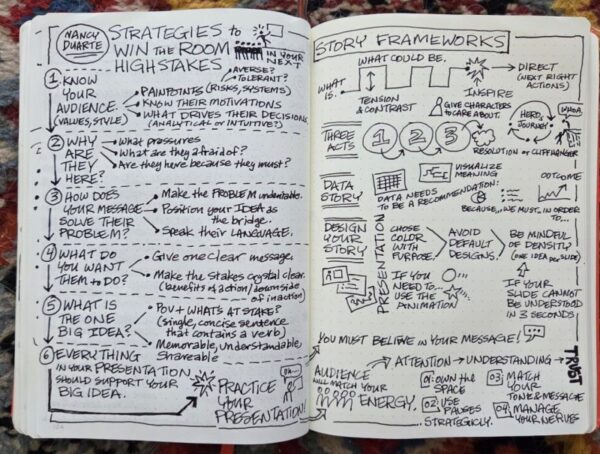 NANCY DUARTE
STRATEGIES to
WIN the ROOM
HIGH STAKES
IN YOUR NEXT
① KNOW
YOUR
AUDIENCE.
(VALUES, STYLE)
AVERSE?
TOLERANT?
PAINPOINTS (RISKS, SYSTEMS)
KNOW THEIR MOTIVATIONS
WHAT DRIVES THEIR DECISIONS
(ANALYTICAL or INTUITIVE?)
② WHY
ARE
THEY
HERE?
What pressures
What are they afraid of?
Are they here because they must?
③ HOW DOES
YOUR MESSAGE
SOLVE THEIR
PROBLEM?
Make the PROBLEM undeniable.
Position your IDEA as
the bridge.
Speak their LANGUAGE.
④ WHAT DO
YOU WANT
THEM to DO?
Give one clear message.
Make the stakes crystal clear.
(benefits of action/downside
of inaction)
⑤ WHAT IS
THE ONE
BIG IDEA?
POV + WHAT'S AT STAKE?
(single, concise sentence
that contains a verb)
Memorable, understandable
Shareable
⑥ EVERYTHING
IN YOUR PRESENTATION
SHOULD SUPPORT YOUR
BIG IDEA.
PRACTICE
YOUR
PRESENTATION!
STORY FRAMEWORKS
WHAT COULD BE.
WHAT
IS.
TENSION
& CONTRAST
INSPIRE
DIRECT
(NEXT RIGHT
ACTIONS)
GIVE CHARACTERS
TO CARE ABOUT.
THREE
ACTS
1 2 3
HERO
JOURNEY
WHOA.
RESOLUTION or CLIFFHANGER
DATA
STORY
VISUALIZE
MEANING
DATA NEEDS
TO BE A RECOMMENDATION:
OUTCOME
BECAUSE,... WE MUST, IN ORDER
TO...
DESIGN
YOUR
STORY
PRESENTATION
CHOSE
COLOR
WITH
PURPOSE.
AVOID
DEFAULT
DESIGNS.
BE MINDFUL
OF DENSITY
(ONE IDEA per SLIDE)
IF YOU
NEED TO...
USE THE
ANIMATION
IF YOUR
SLIDE CANNOT
BE UNDERSTOOD
IN 3 SECONDS
YOU MUST BELIEVE IN YOUR MESSAGE!
ATTENTION → UNDERSTANDING →
TRUST
AUDIENCE
WILL MATCH YOUR
ENERGY.
01: OWN THE
SPACE
02: USE
PAUSES
STRATEGICLY.
03: MATCH
YOUR
TONE & MESSAGE
04: MANAGE
YOUR NERVES